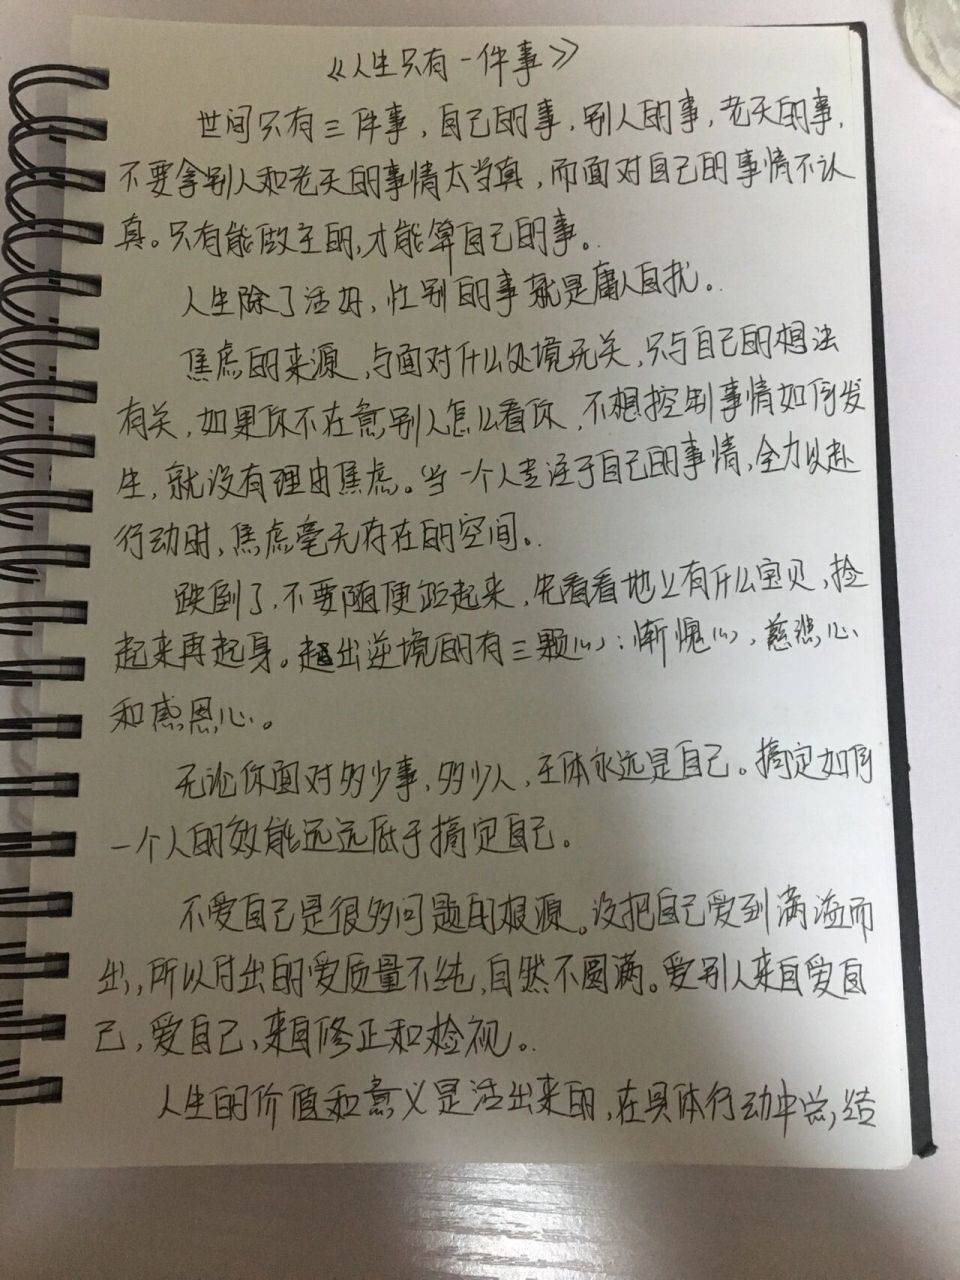 《人生只有一件事》
世间只有三件事，自己的事，别人的事，老天的事，
不要拿别人和老天的事情太当真，而面对自己的事情不认
真。只有能做主的，才能算自己的事。
人生除了活好，忙别的事就是庸人自扰。
焦虑的来源，与面对什么处境无关，只与自己的想法
有关，如果你不在意别人怎么看你，不想控制事情如何发
生，就没有理由焦虑。当一个人专注于自己的事情，全力以赴
行动时，焦虑毫无存在的空间。
跌倒了，不要随便站起来，先看看地上有什么宝贝，捡
起来再起身。超出逆境的有三颗心：惭愧心，慈悲心
和感恩心。
无论你面对多少事，多少人，主体永远是自己。搞定如何
一个人的效能远远低于搞定自己。
不爱自己是很多问题的根源。没把自己爱到满溢而
出，所以付出的爱质量不纯，自然不圆满。爱别人来自爱自
己，爱自己，来自修正和检视。
人生的价值和意义是活出来的，在具体行动中总结